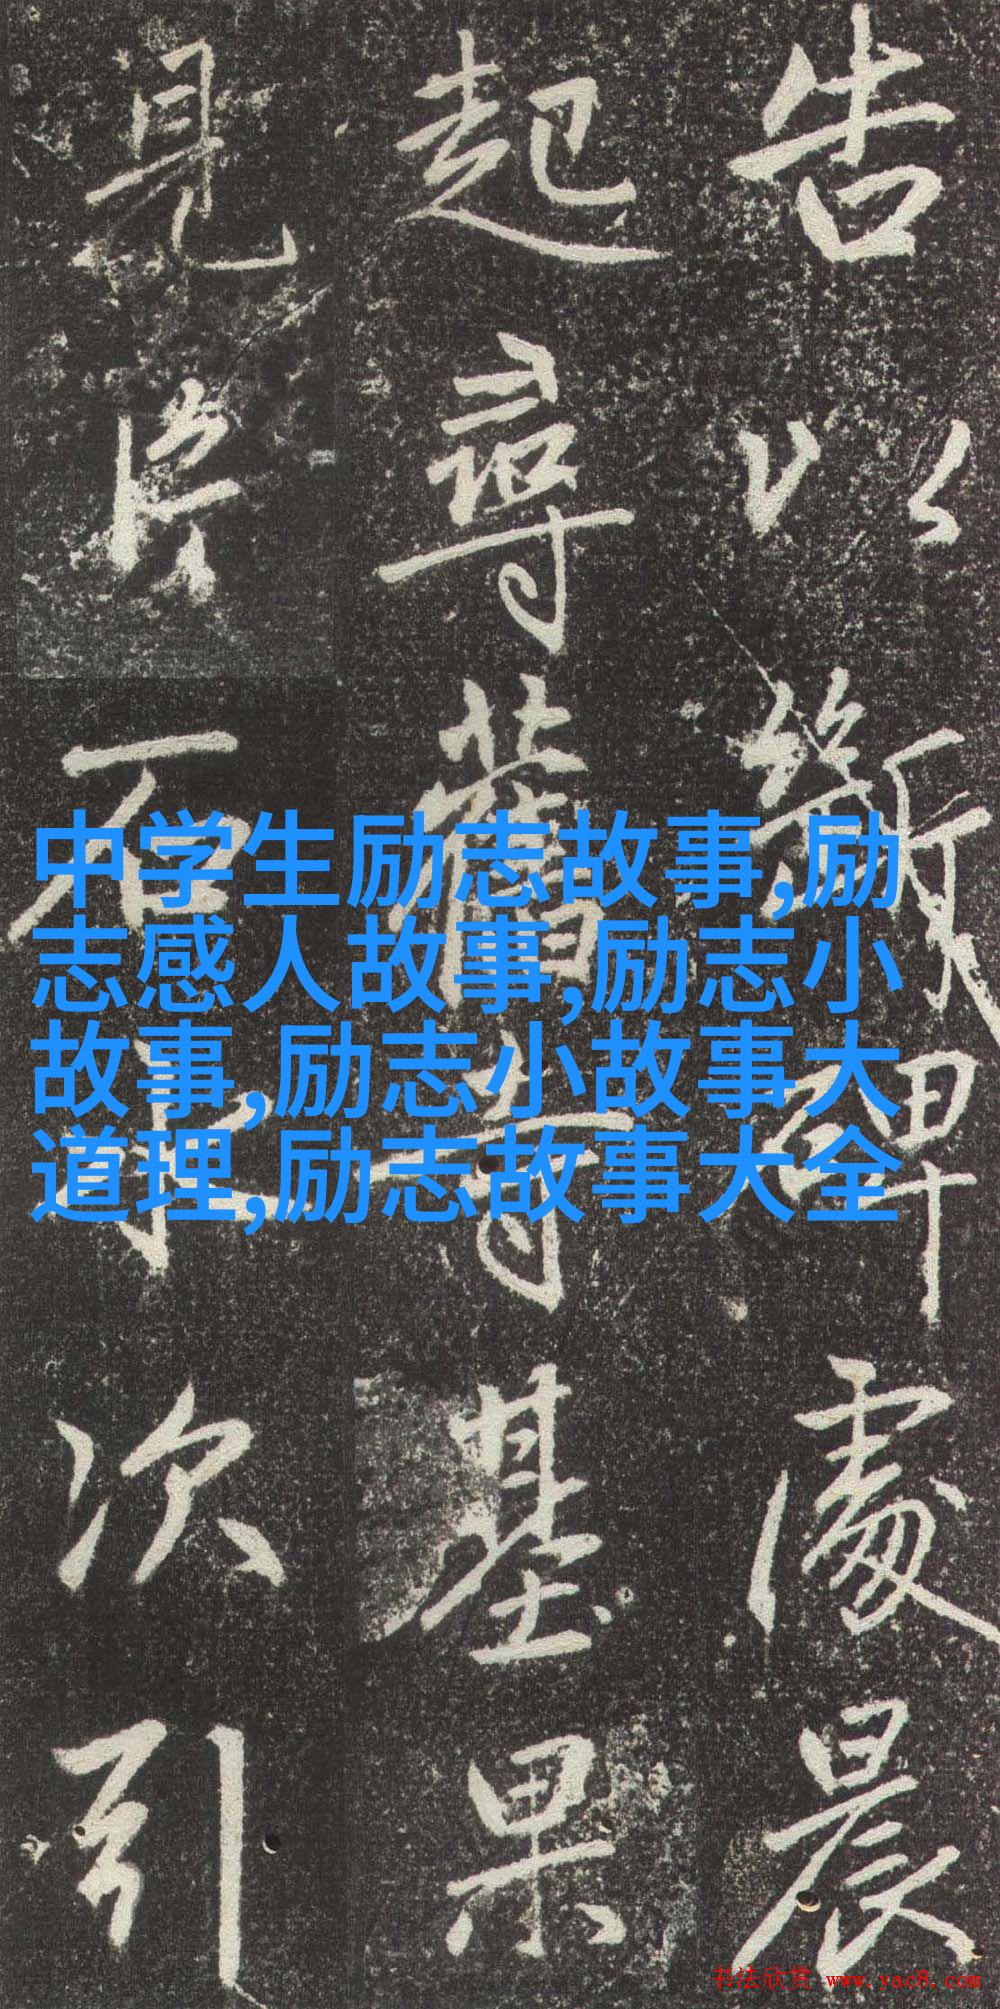 告以碑處晨
起尋舊寺基果
見片石次引
中学生励志故事,励
志感人故事,励志小
故事,励志小故事大
道理,励志故事大全
书法欣赏 www.yac8.com